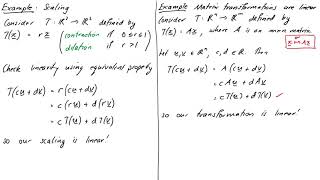 Example: Scaling
Consider T: ℝ² → ℝ² defined by
T(x) = rx { contraction if 0≤r≤1
dilation if r>1
Check linearity using equivalent property
T(cu+dv) = r(cu+dv)
= c(ru) + d(rv)
= cT(u) + dT(v)
so our scaling is linear!
Example Matrix transformations are linear
Consider T: ℝⁿ → ℝᵐ defined by
T(x) = Ax, where A is an m×n matrix
x ↦ Ax
Let u, v ∈ ℝⁿ, c, d ∈ ℝ. Then
T(cu+dv) = A(cu+dv)
= cAu + dAv
= cT(u) + dT(v) ✓
So our transformation is linear!